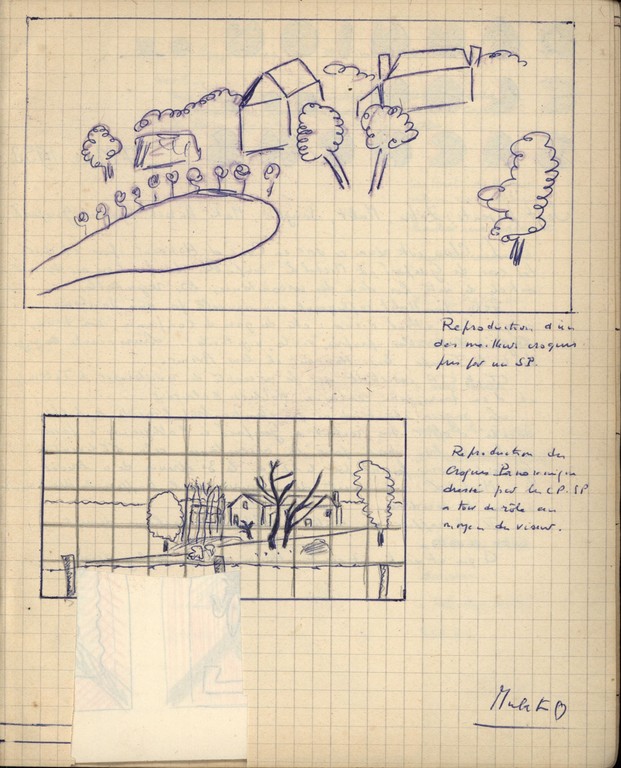 Reproduction d'un
des meilleurs croquis
pris par un SP.
Reproduction du
Croquis Panoramique
dressé par les CP. SP
a tour de rôle au
moyen du viseur.